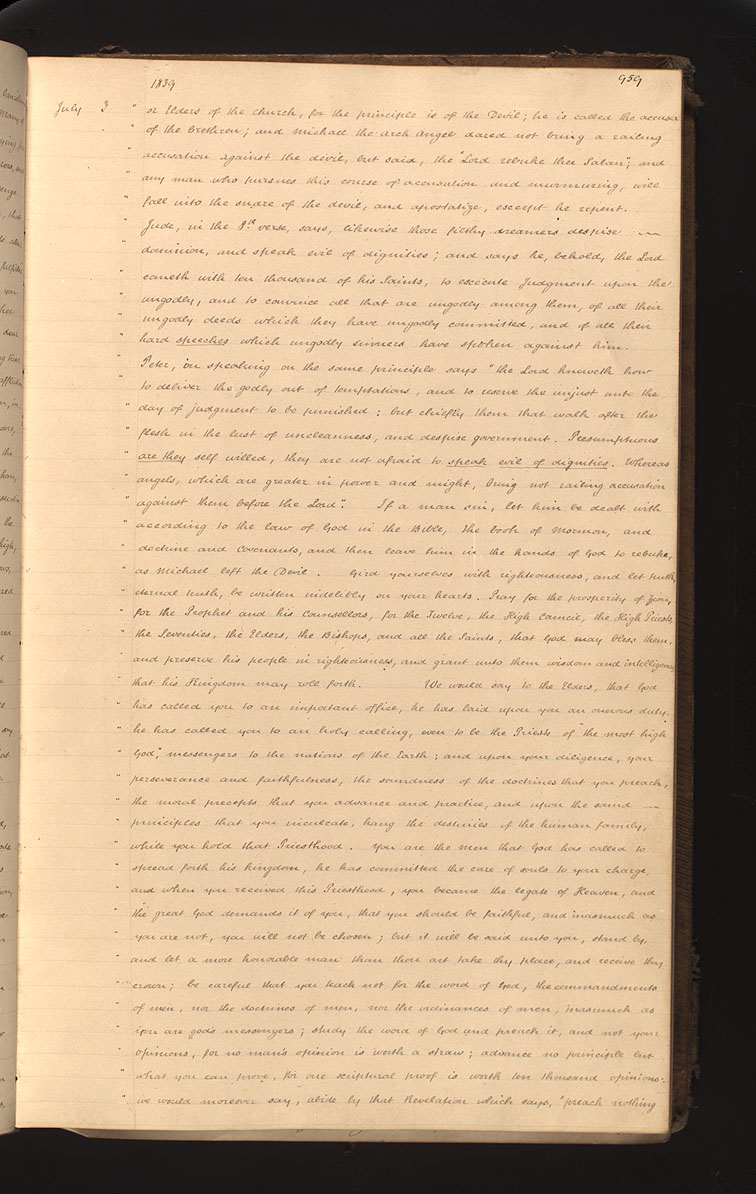 1839 959
July 3 " or Elders of the Church, for the principle is of the Devil; he is called the accuser
" of the brethren; and Michael the arch angel dared not bring a railing
" accusation against the devil, but said, the "Lord rebuke thee Satan"; and
" any man who pursues this course of accusation and murmuring, will
" fall into the snare of the devil, and apostatize, except he repent.
" Jude, in the 8th verse, says, likewise those filthy dreamers despise —
" dominion, and speak evil of dignities; and says he, behold, the Lord
" cometh with ten thousand of his Saints, to execute Judgment upon the
" ungodly, and to convince all that are ungodly among them, of all their
" ungodly deeds which they have ungodly committed, and of all their
" hard speeches which ungodly sinners have spoken against him.
" Peter, in speaking on the same principle says "the Lord knoweth how
" to deliver the godly out of temptations, and to reserve the unjust unto the
" day of judgment to be punished: but chiefly them that walk after the
" flesh in the lust of uncleanness, and despise government. Presumptuous
" are they self willed, they are not afraid to speak evil of dignities. Whereas
" angels, which are greater in power and might, bring not railing accusation
" against them before the Lord". If a man sin, let him be dealt with
" according to the law of God in the Bible, the book of Mormon, and
" doctrine and Covenants, and then leave him in the hands of God to rebuke,
" as Michael left the Devil. Gird yourselves with righteousness, and let truth,
" eternal truth, be written indelibly on your hearts. Pray for the prosperity of Zion,
" for the Prophet and his Counsellors, for the Twelve, the High Council, the High Priests,
" the Seventies, the Elders, the Bishops, and all the Saints, that God may bless them,
" and preserve his people in righteousness, and grant unto them wisdom and intelligence,
" that his Kingdom may roll forth. We would say to the Elders, that God
" has called you to an important office, he has laid upon you an onerous duty,
" he has called you to an holy calling, even to be the Priests of "the most high
" God", messengers to the nations of the Earth; and upon your diligence, your
" perseverance and faithfulness, the soundness of the doctrines that you preach,
" the moral precepts that you advance and practice, and upon the sound —
" principles that you inculcate, hang the destinies of the human family,
" while you hold that Priesthood. You are the men that God has called to
" spread forth his kingdom, he has committed the care of souls to your charge,
" and when you received this Priesthood, you became the legate of Heaven, and
" the great God demands it of you, that you should be faithful, and inasmuch as
" you are not, you will not be chosen; but it will be said unto you, stand by,
" and let a more honorable man than thou art take thy place, and receive thy
" crown; be careful that you teach not for the word of God, the commandments
" of men, nor the doctrines of men, nor the ordinances of men, inasmuch as
" you are gods messengers; study the word of God and preach it, and not your
" opinions, for no man's opinion is worth a straw; advance no principle but
" what you can prove, for one scriptural proof is worth ten thousand opinions:
" we would moreover say, abide by that Revelation which says, "preach nothing